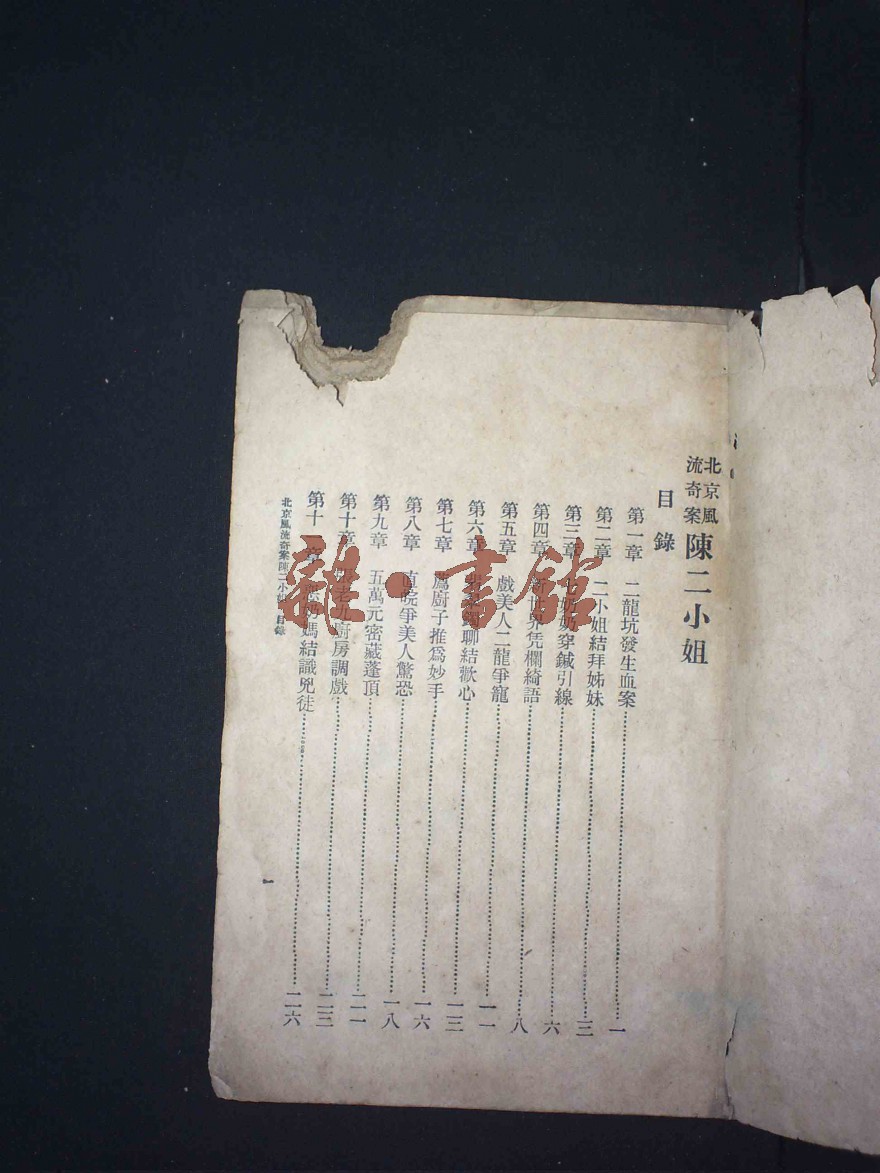 北京風流奇案陳二小姐
目錄
第一章 二龍坑發生血案 一
第二章 二小姐結拜姊妹 三
第三章 七奶奶穿鍼引線 六
第四章 新世界凭欄綺語 八
第五章 戲美人二龍爭寵 一一
第六章 聊結歡心 一三
第七章 薦廚子推爲妙手 一六
第八章 直皖爭美人驚恐 一八
第九章 五萬元密藏蓬頂 二一
第十章 老九廚房調戲 二三
第十一章 媽結識兇徒 二六
北京風流奇案陳二小姐 目錄
一
雜·書館